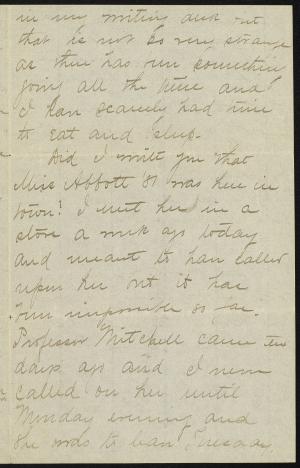 in my writing desk but
that is not so very strange
as there has been something
going all the time and
I have scarcely had time
to eat and sleep.
Did I write you that
Miss Abbott was here in
town? I met her in a
store a week ago today
and meant to have called
upon her but it has
been impossible so far.
Professor Mitchell came ten
days ago and I never
called on her until
Monday evening and
she was to leave Tuesday